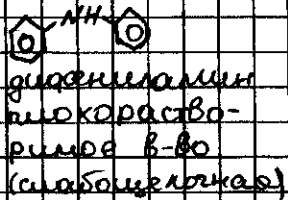 NH
дифениламин
плохораство-
римое в-во
(слабощелочная)